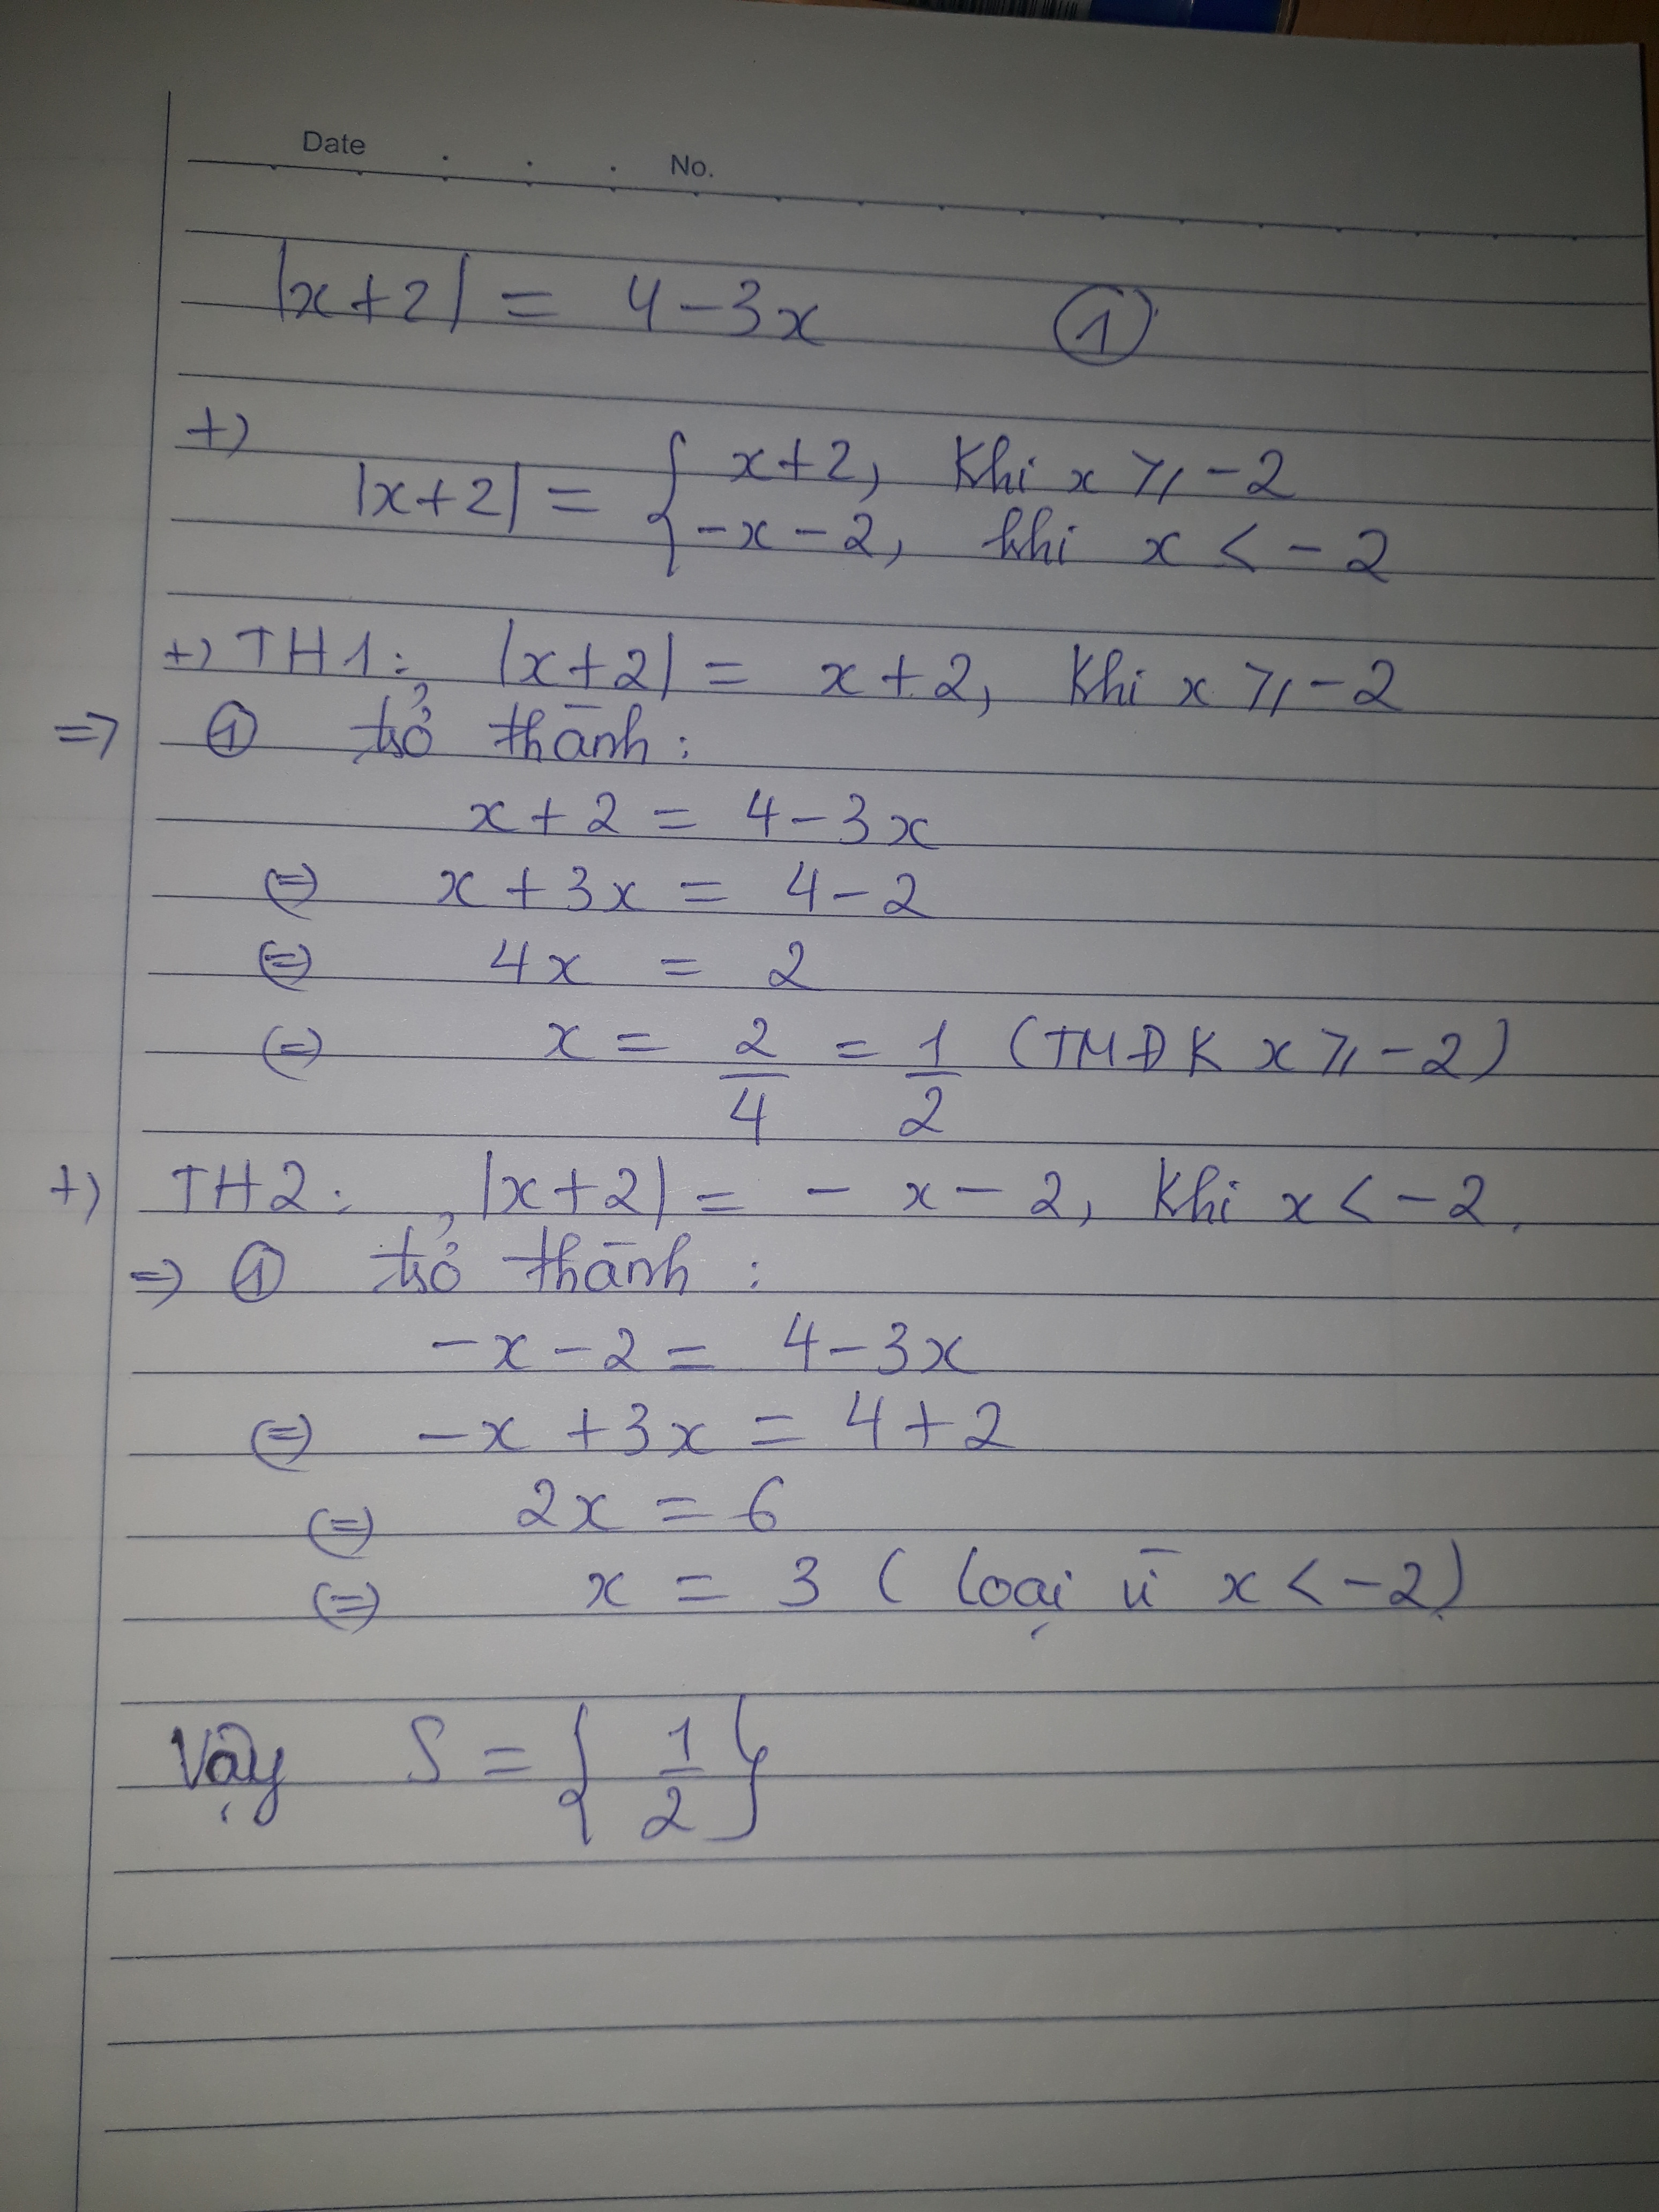 Date No.
|x+2| = 4-3x ①
+) |x+2| = { x+2, Khi x ⩾ -2
-x-2, khi x < -2
+) TH1: |x+2| = x+2, Khi x ⩾ -2
=> ① trở thành:
x+2 = 4-3x
(=) x+3x = 4-2
(=) 4x = 2
(=) x = 2/4 = 1/2 (TMĐK x ⩾ -2)
+) TH2: |x+2| = -x-2, Khi x < -2.
=> ① trở thành:
-x-2 = 4-3x
(=) -x+3x = 4+2
(=) 2x = 6
(=) x = 3 (loại vì x < -2)
Vậy S = {1/2}